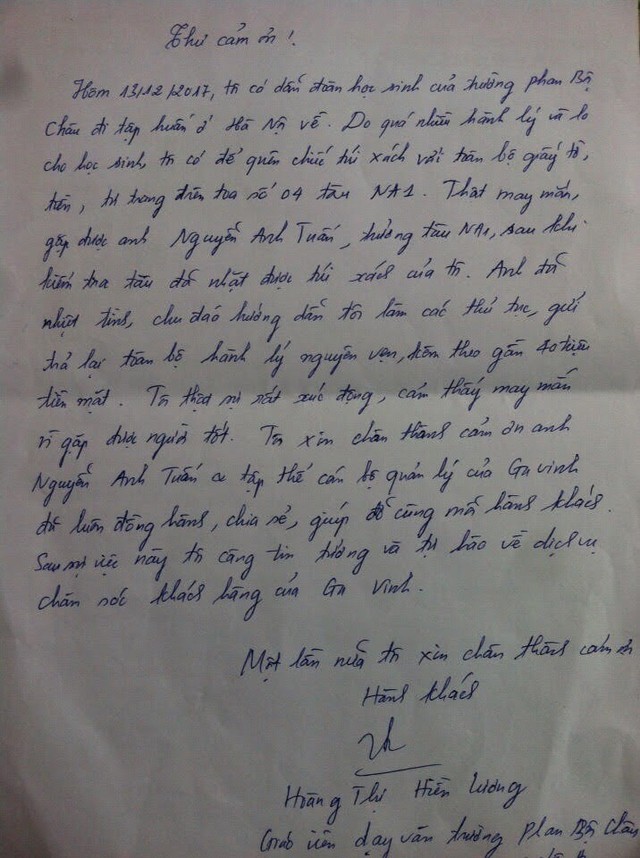 Thư cảm ơn!
Hôm 13/12/2017, tôi có dẫn đoàn học sinh của trường Phan Bội
Châu đi tập huấn ở Hà Nội về. Do quá nhiều hành lý và lo
cho học sinh, tôi có để quên chiếc túi xách với toàn bộ giấy tờ,
tiền, tư trang trên toa số 04 tàu NA1. Thật may mắn,
gặp được anh Nguyễn Anh Tuấn, trưởng tàu NA1, sau khi
kiểm tra tàu đã nhặt được túi xách của tôi. Anh đã
nhiệt tình, chu đáo hướng dẫn tôi làm các thủ tục, gửi
trả lại toàn bộ hành lý nguyên vẹn, kèm theo gần 40 triệu
tiền mặt. Tôi thật sự rất xúc động, cảm thấy may mắn
vì gặp được người tốt. Tôi xin chân thành cảm ơn anh
Nguyễn Anh Tuấn và tập thể cán bộ quản lý của Ga Vinh
đã luôn đồng hành, chia sẻ, giúp đỡ cùng mỗi hành khách.
Sau sự việc này tôi càng tin tưởng và tự hào về dịch vụ
chăm sóc khách hàng của Ga Vinh.
Một lần nữa tôi xin chân thành cảm ơn
Hành khách
Hoàng Thị Hiền Lương
Giáo viên dạy văn trường Phan Bội Châu